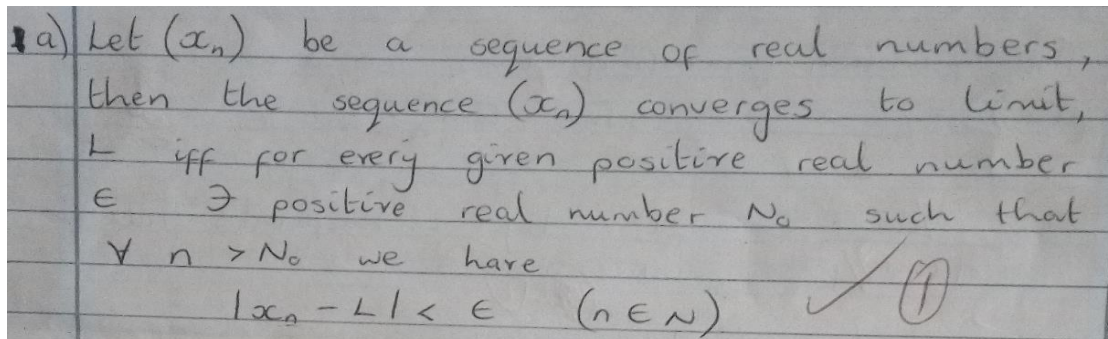 1 a) Let (xₙ) be a sequence of real numbers,
then the sequence (xₙ) converges to limit,
L iff for every given positive real number
ϵ ∃ positive real number N₀ such that
∀ n > N₀ we have
|xₙ - L| < ϵ (n ∈ N) ✓ ①